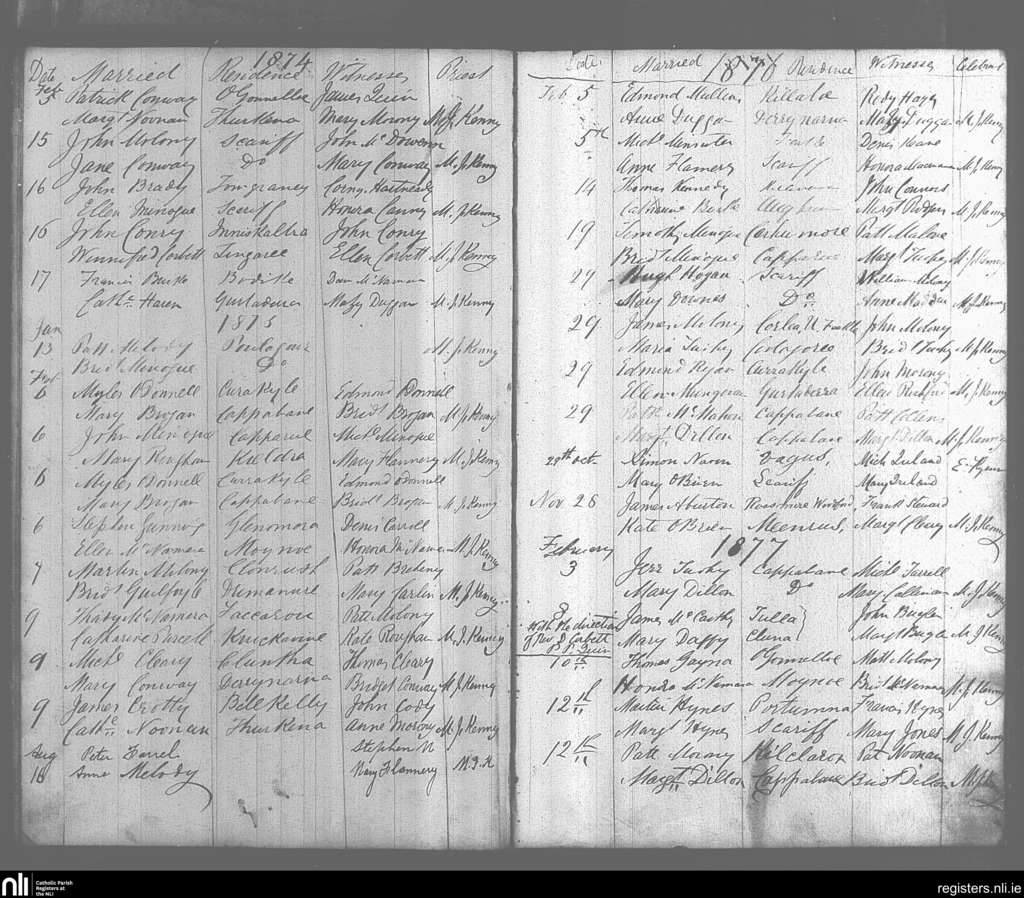 1874
Date Married Residence Witnesses Priest
Feb
5 Patrick Conway O'Gonnelloe James Quin
Margt Noonan Thurkena Mary Morony M. J. Kenny
15 John Molony Scariff John McDowern
Jane Conway Do Mary Conway M. J. Kenny
16 John Brady Tomgraney Corns Hartnedy
Ellen Minogue Scariff Honora Canny M. J. Kenny
16 John Conry Inniskaltra John Conry
Winnifred Corbett Lingaree Ellen Corbett M. J. Kenny
17 Francis Burke Bodike Dan McNamara
Cathe Haren Gurtaderra Mary Duggan M. J. Kenny
Jan 1875
13 Patt Melody Poulagour M. J. Kenny
Bridt Minogue Do
Feb
6 Myles O'Donnell Currakyle Edmond O'Donnell
Mary Brogan Cappabane Bridt Brogan M. J. Kenny
6 John Minogue Capparue Michl Minogue
Mary Roughan Kieldra Mary Flannery M. J. Kenny
6 Myles O'Donnell Currakyle Edmond O'Donnell
Mary Brogan Cappabane Bridt Brogan M. J. Kenny
6 Stephen Glenomora Denis Carroll
Ellen McNamara Moynoe Honora McNamara M. J. Kenny
7 Martin Molony Clonrush Patt
Bridt Guilfoyle Drimanure Mary M. J. Kenny
9 Thady McNamara Patt Molony
Catharine Purcell Knockavine Kate Roughan M. J. Kenny
9 Michl Cleary Cluntha Thomas Cleary
Mary Conway Darynarna Bridget Conway M. J. Kenny
9 James Crotty Billkelly John Cody
Cathe Noonan Thurkena Anne Morony M. J. Kenny
Aug Peter Farrel Stephen
18 Anne Melody Mary Flannery M. J. K
Date Married 1876 Residence Witnesses Celebrant
Feb 5 Edmond Mullens Killaloe Rody Hogan
Anne Duggan Derrynarna Mary Duggan M. J. Kenny
5th Michl Feakle Denis Keane
Anne Flannery Scariff Honora M. J. Kenny
14 Thomas Kennedy John Connors
Catherine Burke Margt M. J. Kenny
19 Timothy Minogue Corkumore Patt Malone
Bridt Minogue Capparue Margt Tuohy M. J. Kenny
27 Hugh Hogan Scariff William Molony
Mary Downes Do Anne Madden M. J. Kenny
29 James Molony Corlea, U Feakle John Molony
Maria Tuohy Coolagoree Bridt Tuohy M. J. Kenny
29 Edmond Ryan Currakyle John Morony
Ellen Gurtaderra Ellen M. J. Kenny
29 Patk McMahon Cappabane Patt
Margt Dillon Cappabane Margt Dillon M. J. Kenny
29th Oct Simon Naven Vagus, Mich Ireland E. Flynn
Mary O'Brien Scariff Mary Ireland
Nov 28 James Aburton Roadmore Wexford Frank Steward
Kate O'Brien Meenrus, Margt Cleary M. J. Kenny
February 1877
3 Jerr Tuohy Cappabane Michl Farrell
Mary Dillon Do Mary Callinan M. J. Kenny
8 James McCarthy Tulla John Bugler
With the direction of Revd J Corbett P.P. Quin
Mary Daffy Cluna Margt Bugler M. J. Kenny
10th Thomas Gayna O'Gonnelloe Matt Molony
Honora McNamara Moynoe Bridt McNamara M. J. Kenny
12th Martin Hynes Portumna Francis Hynes
Margt Hynes Scariff Mary Jones M. J. Kenny
12th Patt Morany Kilclaron Pat Noonan
Margt Dillon Cappabane Bridt Dillon
nli
Catholic Parish
Registers at
the NLI
registers.nli.ie